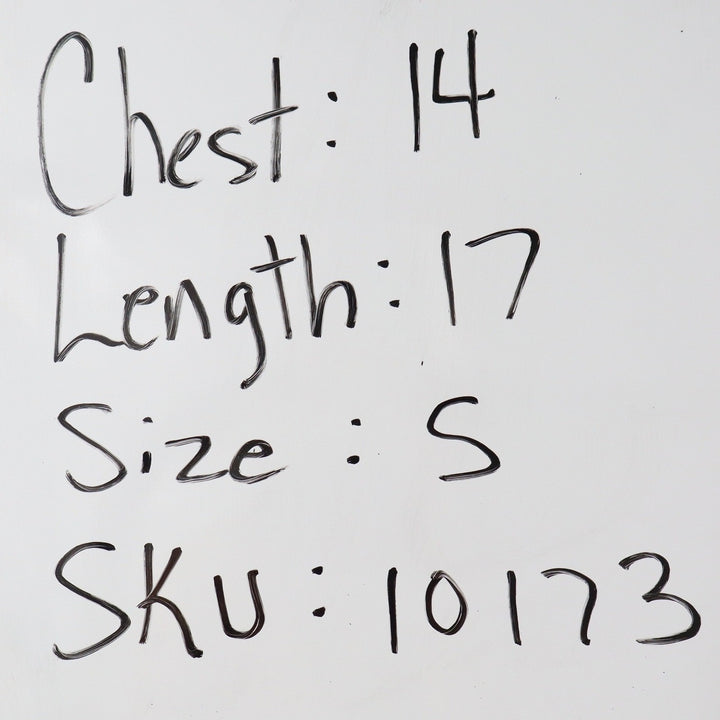 Chest: 14
Length: 17
Size : S
SKU : 10173